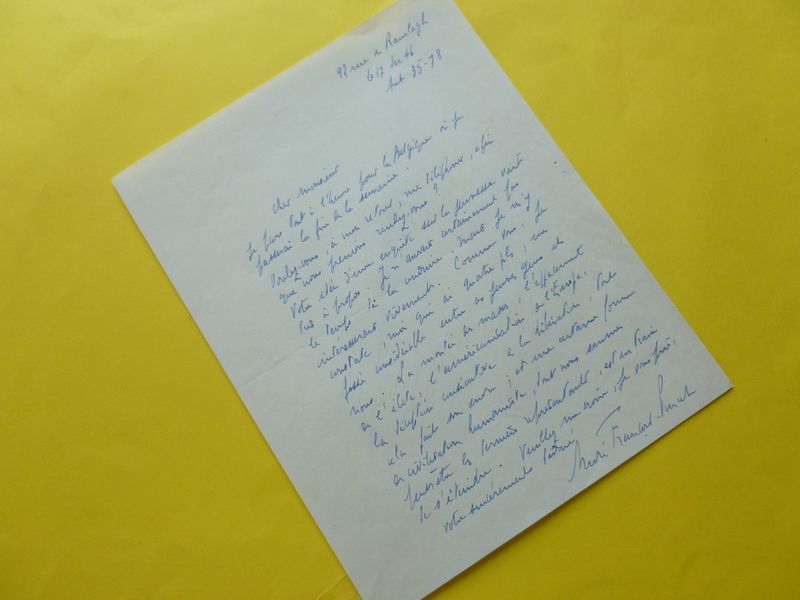 92 rue du Ranelagh
le 17 Dec 46
Aut. 35-78
Cher monsieur
Je pars tout à l'heure pour la Belgique où je
passerai la fin de la semaine.
Voulez-vous, à mon retour, me téléphoner, afin
que nous prenions rendez-vous ?
Votre idée d'une enquête sur la jeunesse vient
très à propos. Je n'aurais certainement pas
le temps de la conduire. Mais je m'y
intéresserais vivement. Comme vous, je
constate, moi qui ai quatre fils, un
fossé considérable entre les jeunes gens et
nous. La montée des masses, l'effacement
de l'élite, l'américanisation de l'Europe,
la déception consécutive à la libération, tout
cela fait son œuvre ; et une certaine forme
de civilisation humaniste, dont nous sommes
peut-être les derniers représentants, est en train
de s'éteindre. Veuillez me croire, je vous prie,
votre sincèrement dévoué,
André François-Poncet